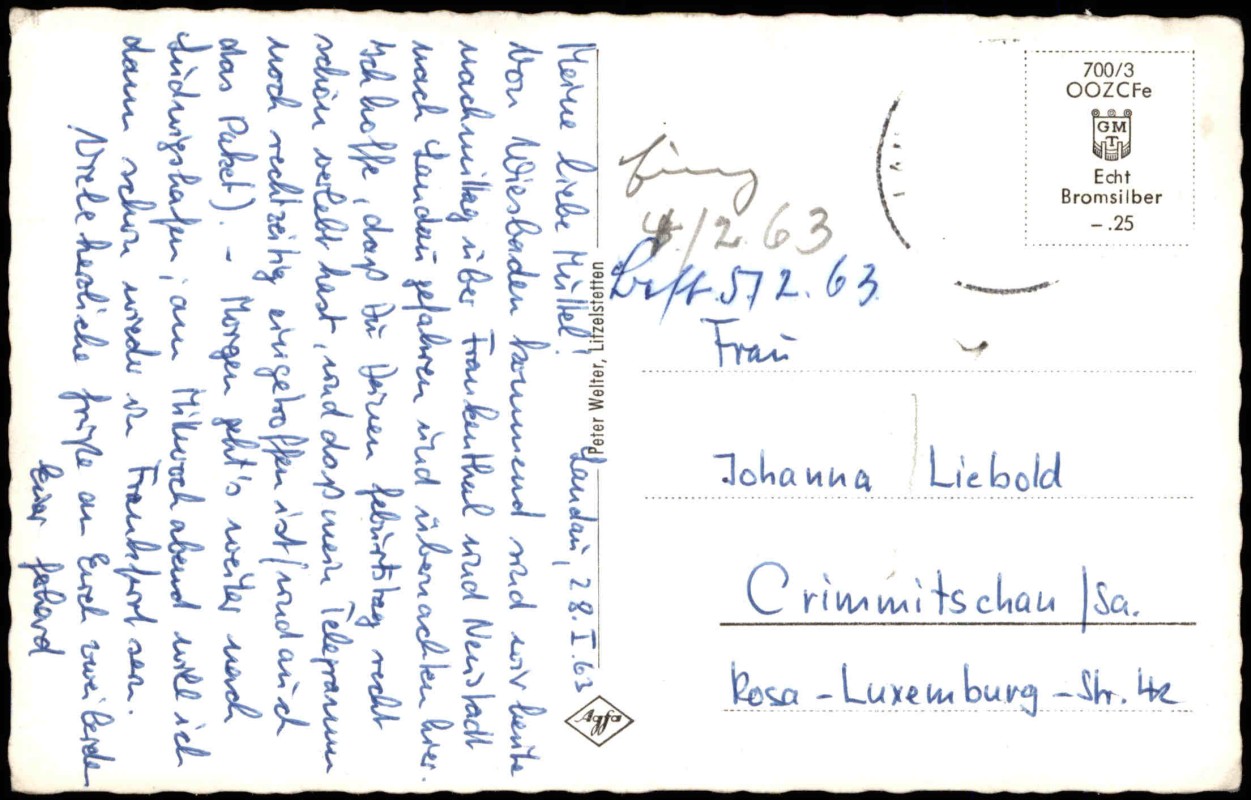 Meine liebe Muttel!
Landau, 28.I.63
Von Wiesbaden kommend sind wir heute
nachmittag über Frankenthal und Neustadt
nach Landau gefahren und übernachten hier.
Ich hoffe, daß Du Deinen Geburtstag recht
schön verlebt hast, und daß mein Telegramm
noch rechtzeitig eingetroffen ist (und auch
das Paket). - Morgen geht's weiter nach
Ludwigshafen; am Mittwoch abend will ich
dann schon wieder in Frankfurt sein.
Viele herzliche Grüße an Euch zwei beide
Euer
Peter Welter, Litzelstetten
Agfa
700/3
OOZCFe
GM
Echt
Bromsilber
-.25
4./2. 63
5/2. 63
Frau
Johanna Liebold
Crimmitschau /Sa.
Rosa-Luxemburg-Str. 42